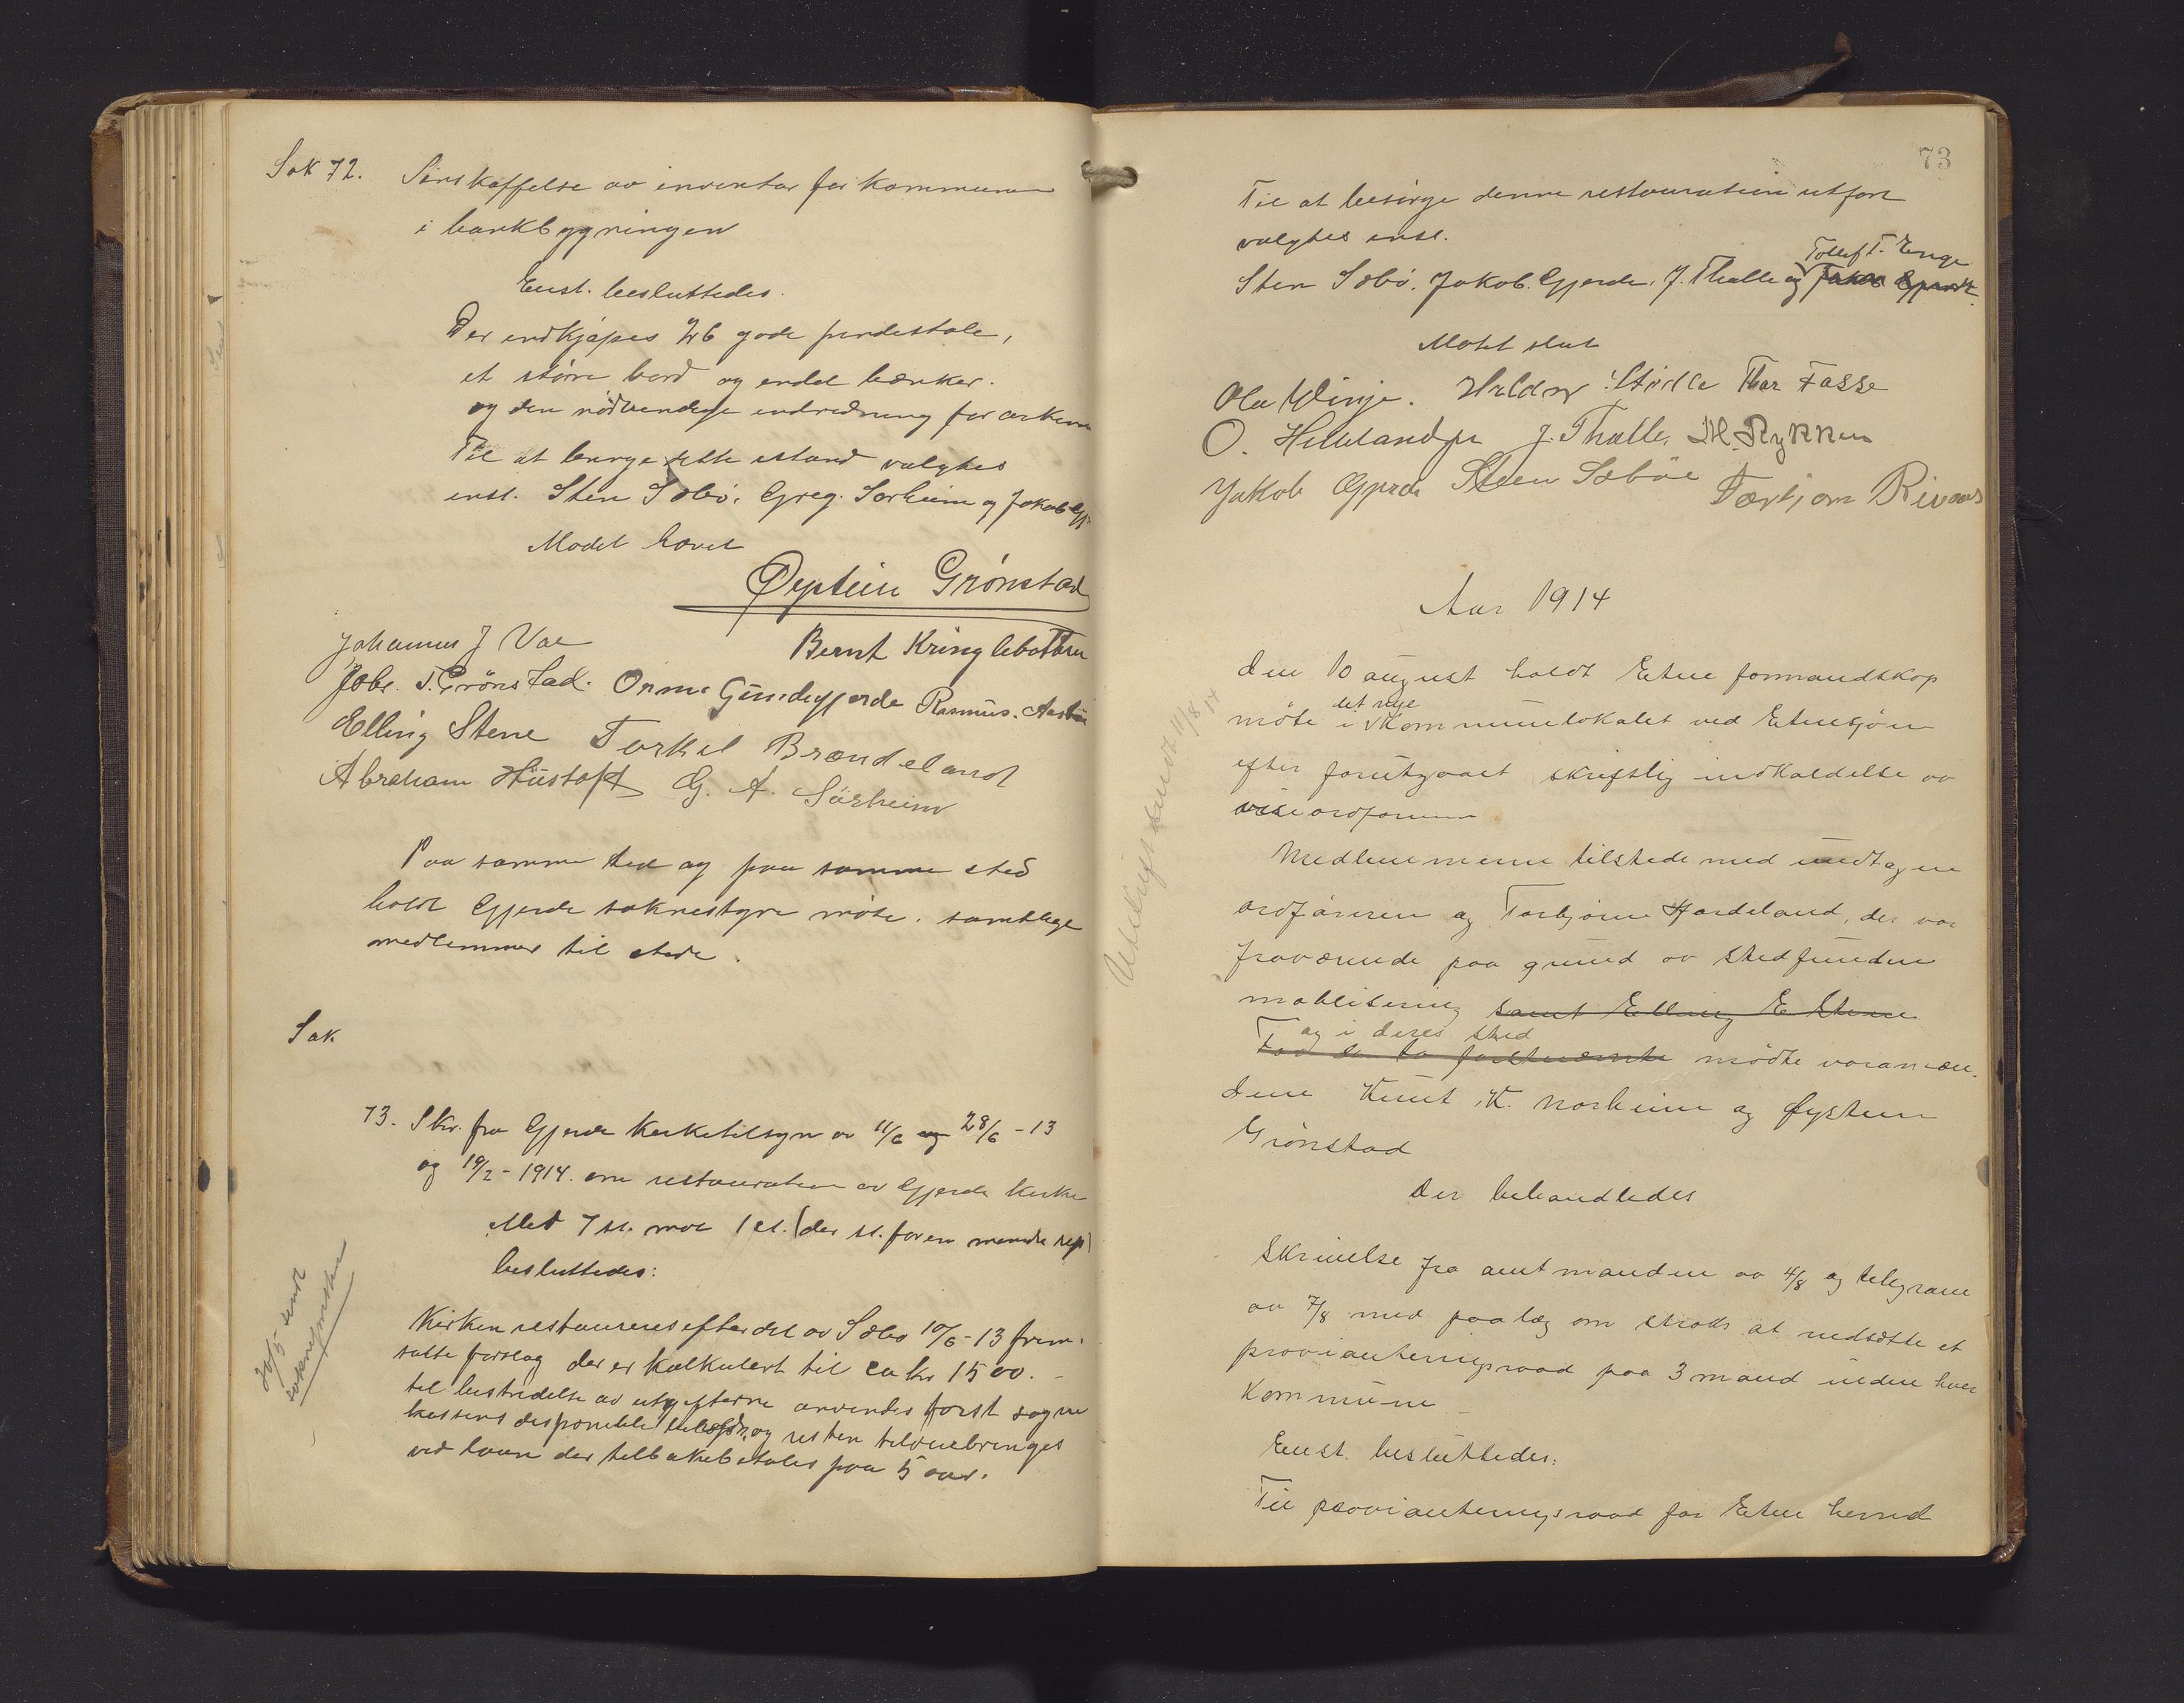 Sak 72. Anskaffelse av inventar for kommunen
i bankbygningen
Enst. besluttedes.
Der indkjøpes 26 gode pindestole,
et større bord og endel bænker.
og den nødvendige indredning for arkivet
Til at bringe dette istand valgtes
enst. Sten Sæbø, Greg. Sørheim og Jakob Gj.
Mødet hævet
Øystein Grønstad
Johannes J Vae
Bernt Kringlebotten
Jobs. T. Grönstad. Orm Gundegjerde Rasmus. Aasbö
Elling Stene Torkel Brændeland
Abraham Hustoft G. A. Sørheim
Paa samme tid og paa samme sted
holdt Gjerde soknestyre møte. samtlige
medlemmer til stede.
Sak
73. Skr. fra Gjerde kirketilsyn av 11/6 og 28/6 - 13
og 19/2 - 1914. om restauration av Gjerde kirke
Med 7 st. mot 1 st. (der st. for en mindre rep)
besluttedes:
Kirken restaureres efter det av Sæbø 10/6 - 13 frem-
satte forslag der er kalkulert til ca kr 1500. -
til bestridelse av utgifterne anvendes først sogne
kassens disponible beholdn. og resten tilveiebringes
ved laan der tilbakebetales paa 5 aar.
sendt
soknepresten
73
Til at besørge denne restauration utført
valgtes enst.
Tollef T. Enge
Sten Sæbø, Jakob Gjerde, J. Thalle og Jakob Gjerde.
Møtet slut
Ola Vinje. Haldor Stødle Thor Fosse
O. Hillelandjr J. Thalle, M. Rykken
Jakob Gjerde Steen Sæböe Torbjørn Rivenes
Aar 1914
den 10 august holdt Etne formandskap
det nye
møte i Kommunelokalet ved Etnesjøen
efter forutgaaet skriftlig indkaldelse av
viseordføreren
Medlemmerne tilstede med undtagen
ordføreren og Torbjørn Hardeland, der var
fraværende paa grund av stedfunden
mobilisering samt Elling E Stene
og i deres sted
For de to førstnævnte mødte varamæn-
dene Knut K. Norheim og Øystein
Grønstad
Der behandledes
Skrivelse fra amtmanden av 4/8 og telegram
av 7/8 med paalæg om straks at nedsætte et
provianteringsraad paa 3 mand inden hver
Kommune
Enst. besluttedes:
Til provianteringsraad for Etne herred
Utskrift sendt 11/8 14